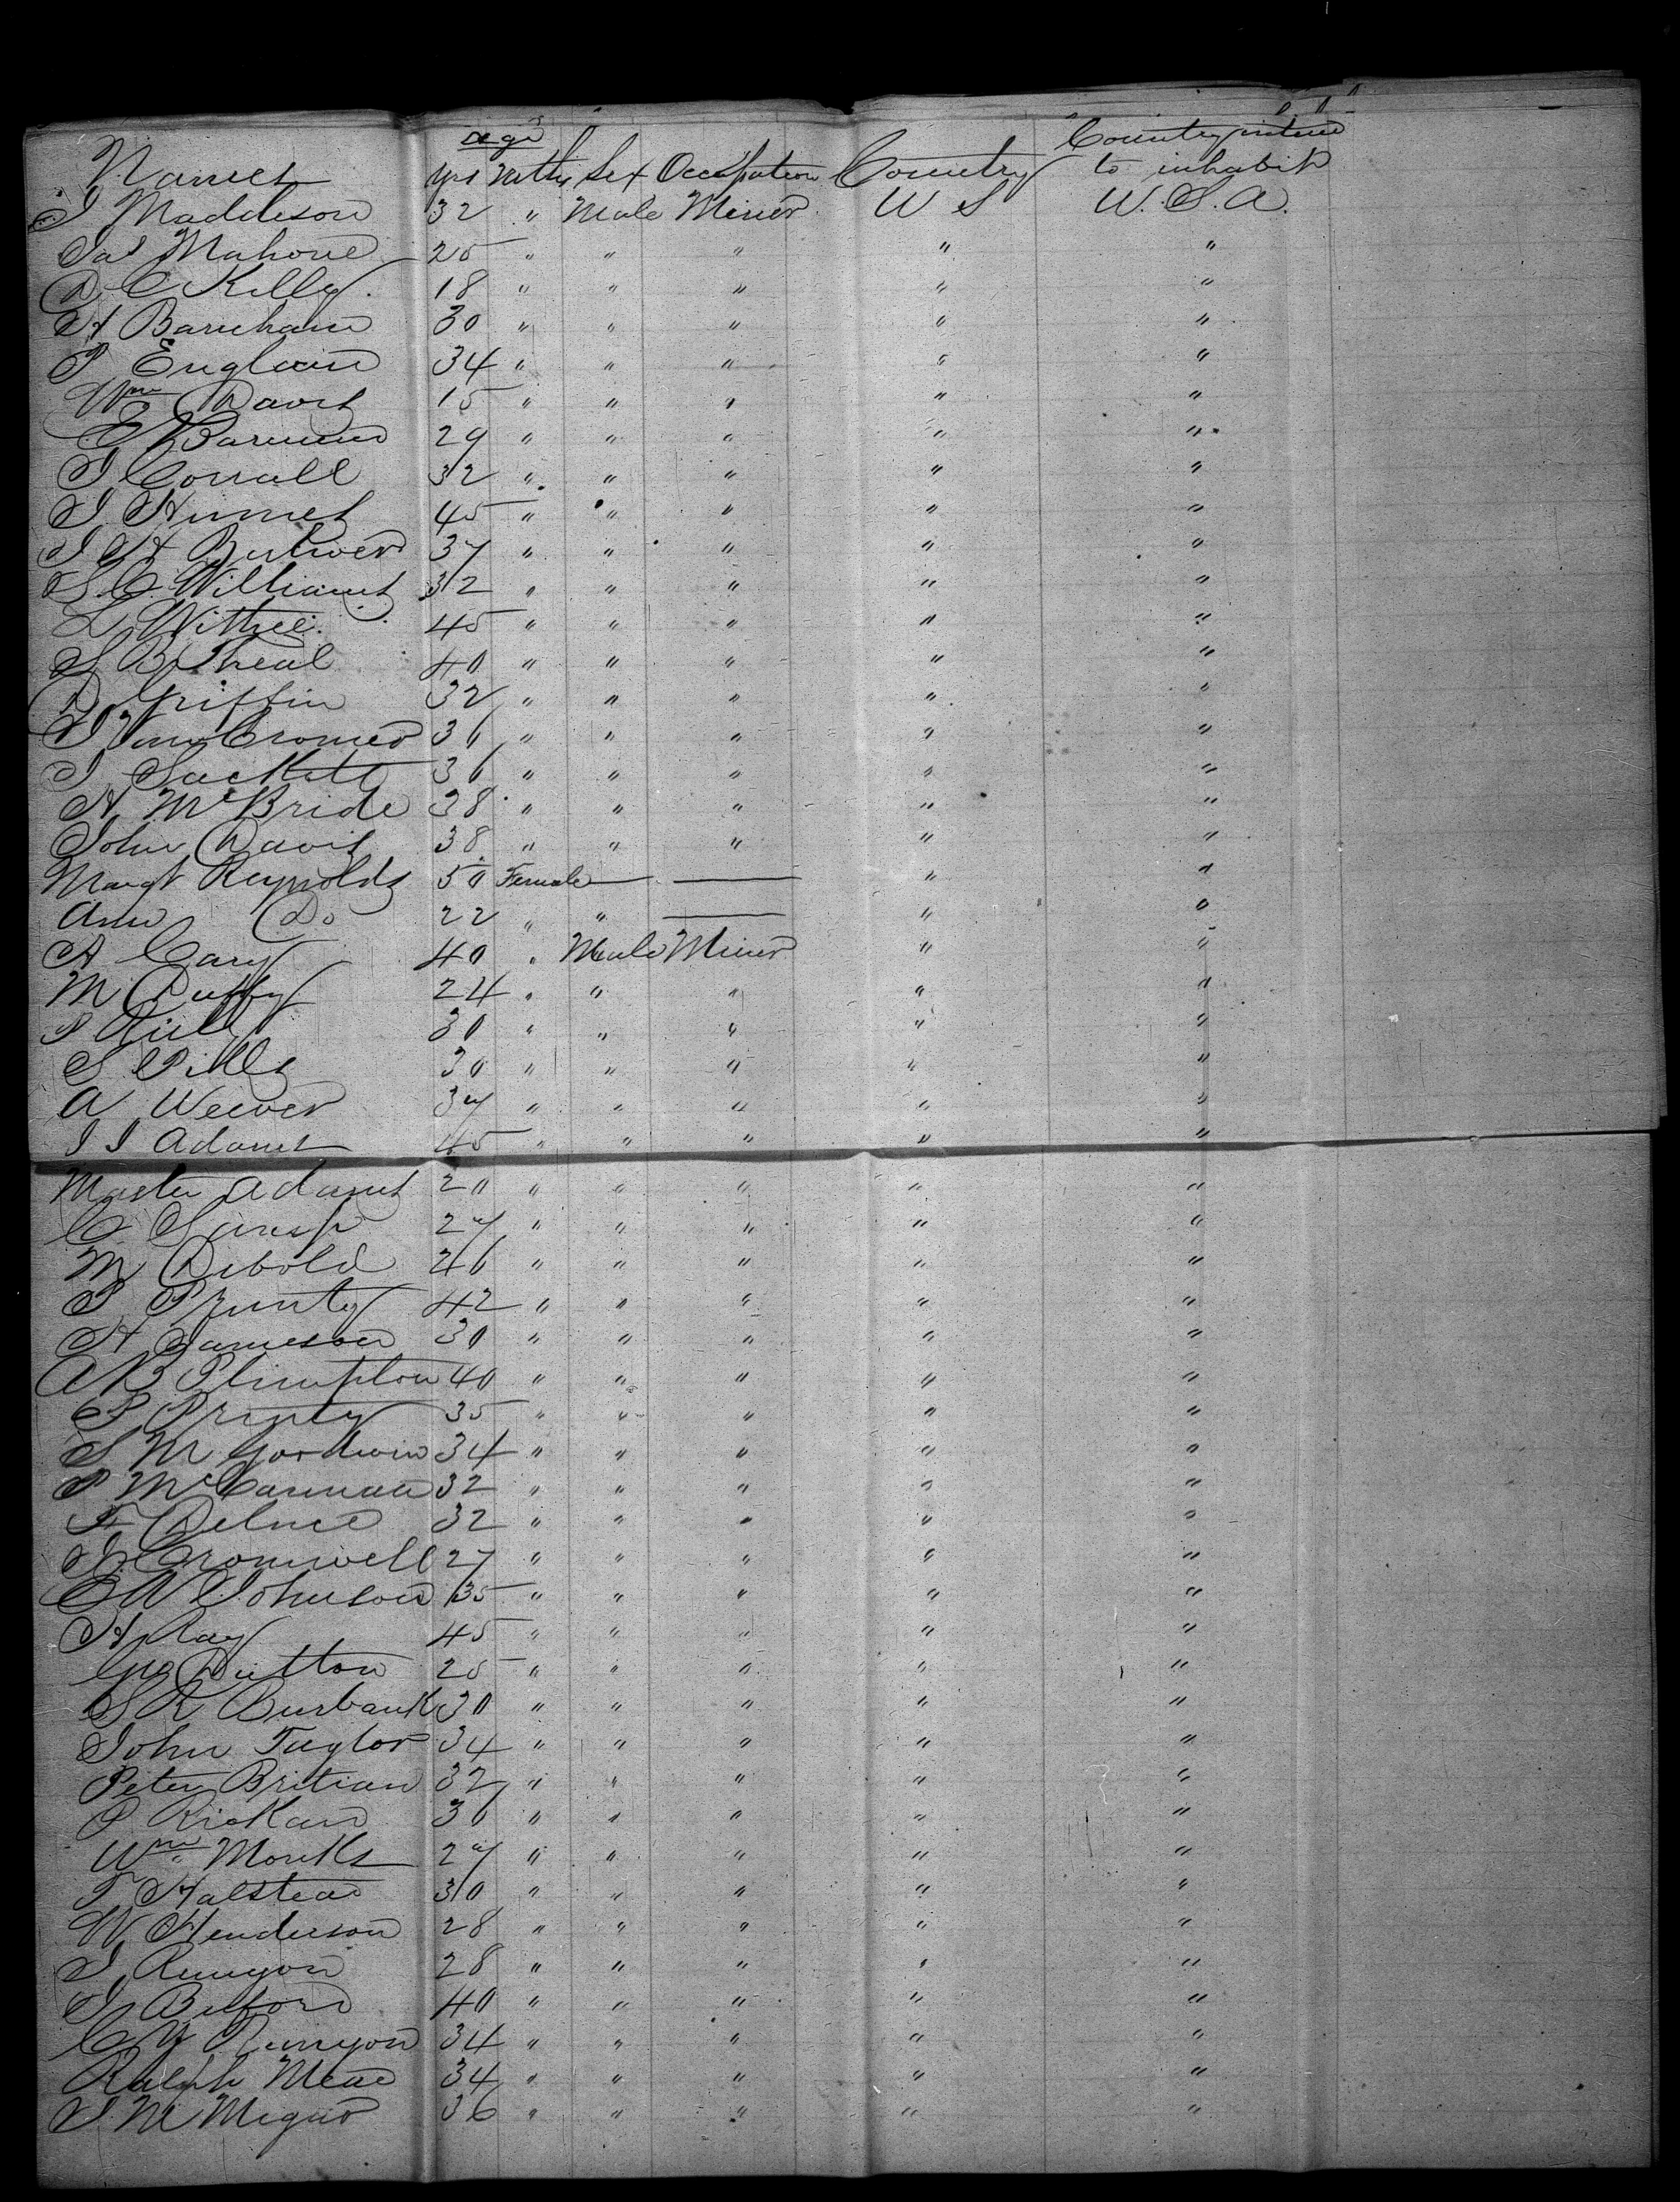 age Country intend
Names yrs Mths Sex Occupation Country to inhabit
J Maddeson 32 " Male Miner U S U. S. A.
Jas Mahone 25 " " " " "
D C Kelly 18 " " " " "
H Barnham 30 " " " " "
P England 34 " " " " "
Wm Davis 15 " " " " "
E Barnum 29 " " " " "
J Corrall 32 " " " " "
J Humes 45 " " " " "
J H Bulwer 37 " " " " "
S. C. Williams 32 " " " " "
L Withee 45 " " " " "
S B Theal 40 " " " " "
D Griffin 32 " " " " "
J Van Cromer 36 " " " " "
J Sackett 36 " " " " "
H McBride 38 " " " " "
John Davis 38 " " " " "
Margt Reynolds 50 Female — — " "
Ann Do 22 " " — " "
A Cary 40 " Male Miner " "
M Duffy 24 " " " " "
P Riely 30 " " " " "
S Pills 30 " " " " "
A Weever 37 " " " " "
J J Adams 45 " " " " "
Master Adams 20 " " " " "
C 27 " " " " "
M Debold 26 " " " " "
P Prunty 42 " " " " "
H Jameson 30 " " " " "
A B Plimpton 40 " " " " "
P 35 " " " " "
S M Goodwin 34 " " " " "
P McCannan 32 " " " " "
F 32 " " " " "
J Cromwell 27 " " " " "
E W Johnson 35 " " " " "
H Ray 45 " " " " "
Geo Dutton 25 " " " " "
S R Burbank 30 " " " " "
John Taylor 34 " " " " "
Peter Britian 32 " " " " "
P Rickard 36 " " " " "
Wm Monks 27 " " " " "
T Halstead 30 " " " " "
W Henderson 28 " " " " "
J Runyon 28 " " " " "
J Buford 40 " " " " "
C Y Runyon 34 " " " " "
Ralph Mead 34 " " " " "
J M 36 " " " " "